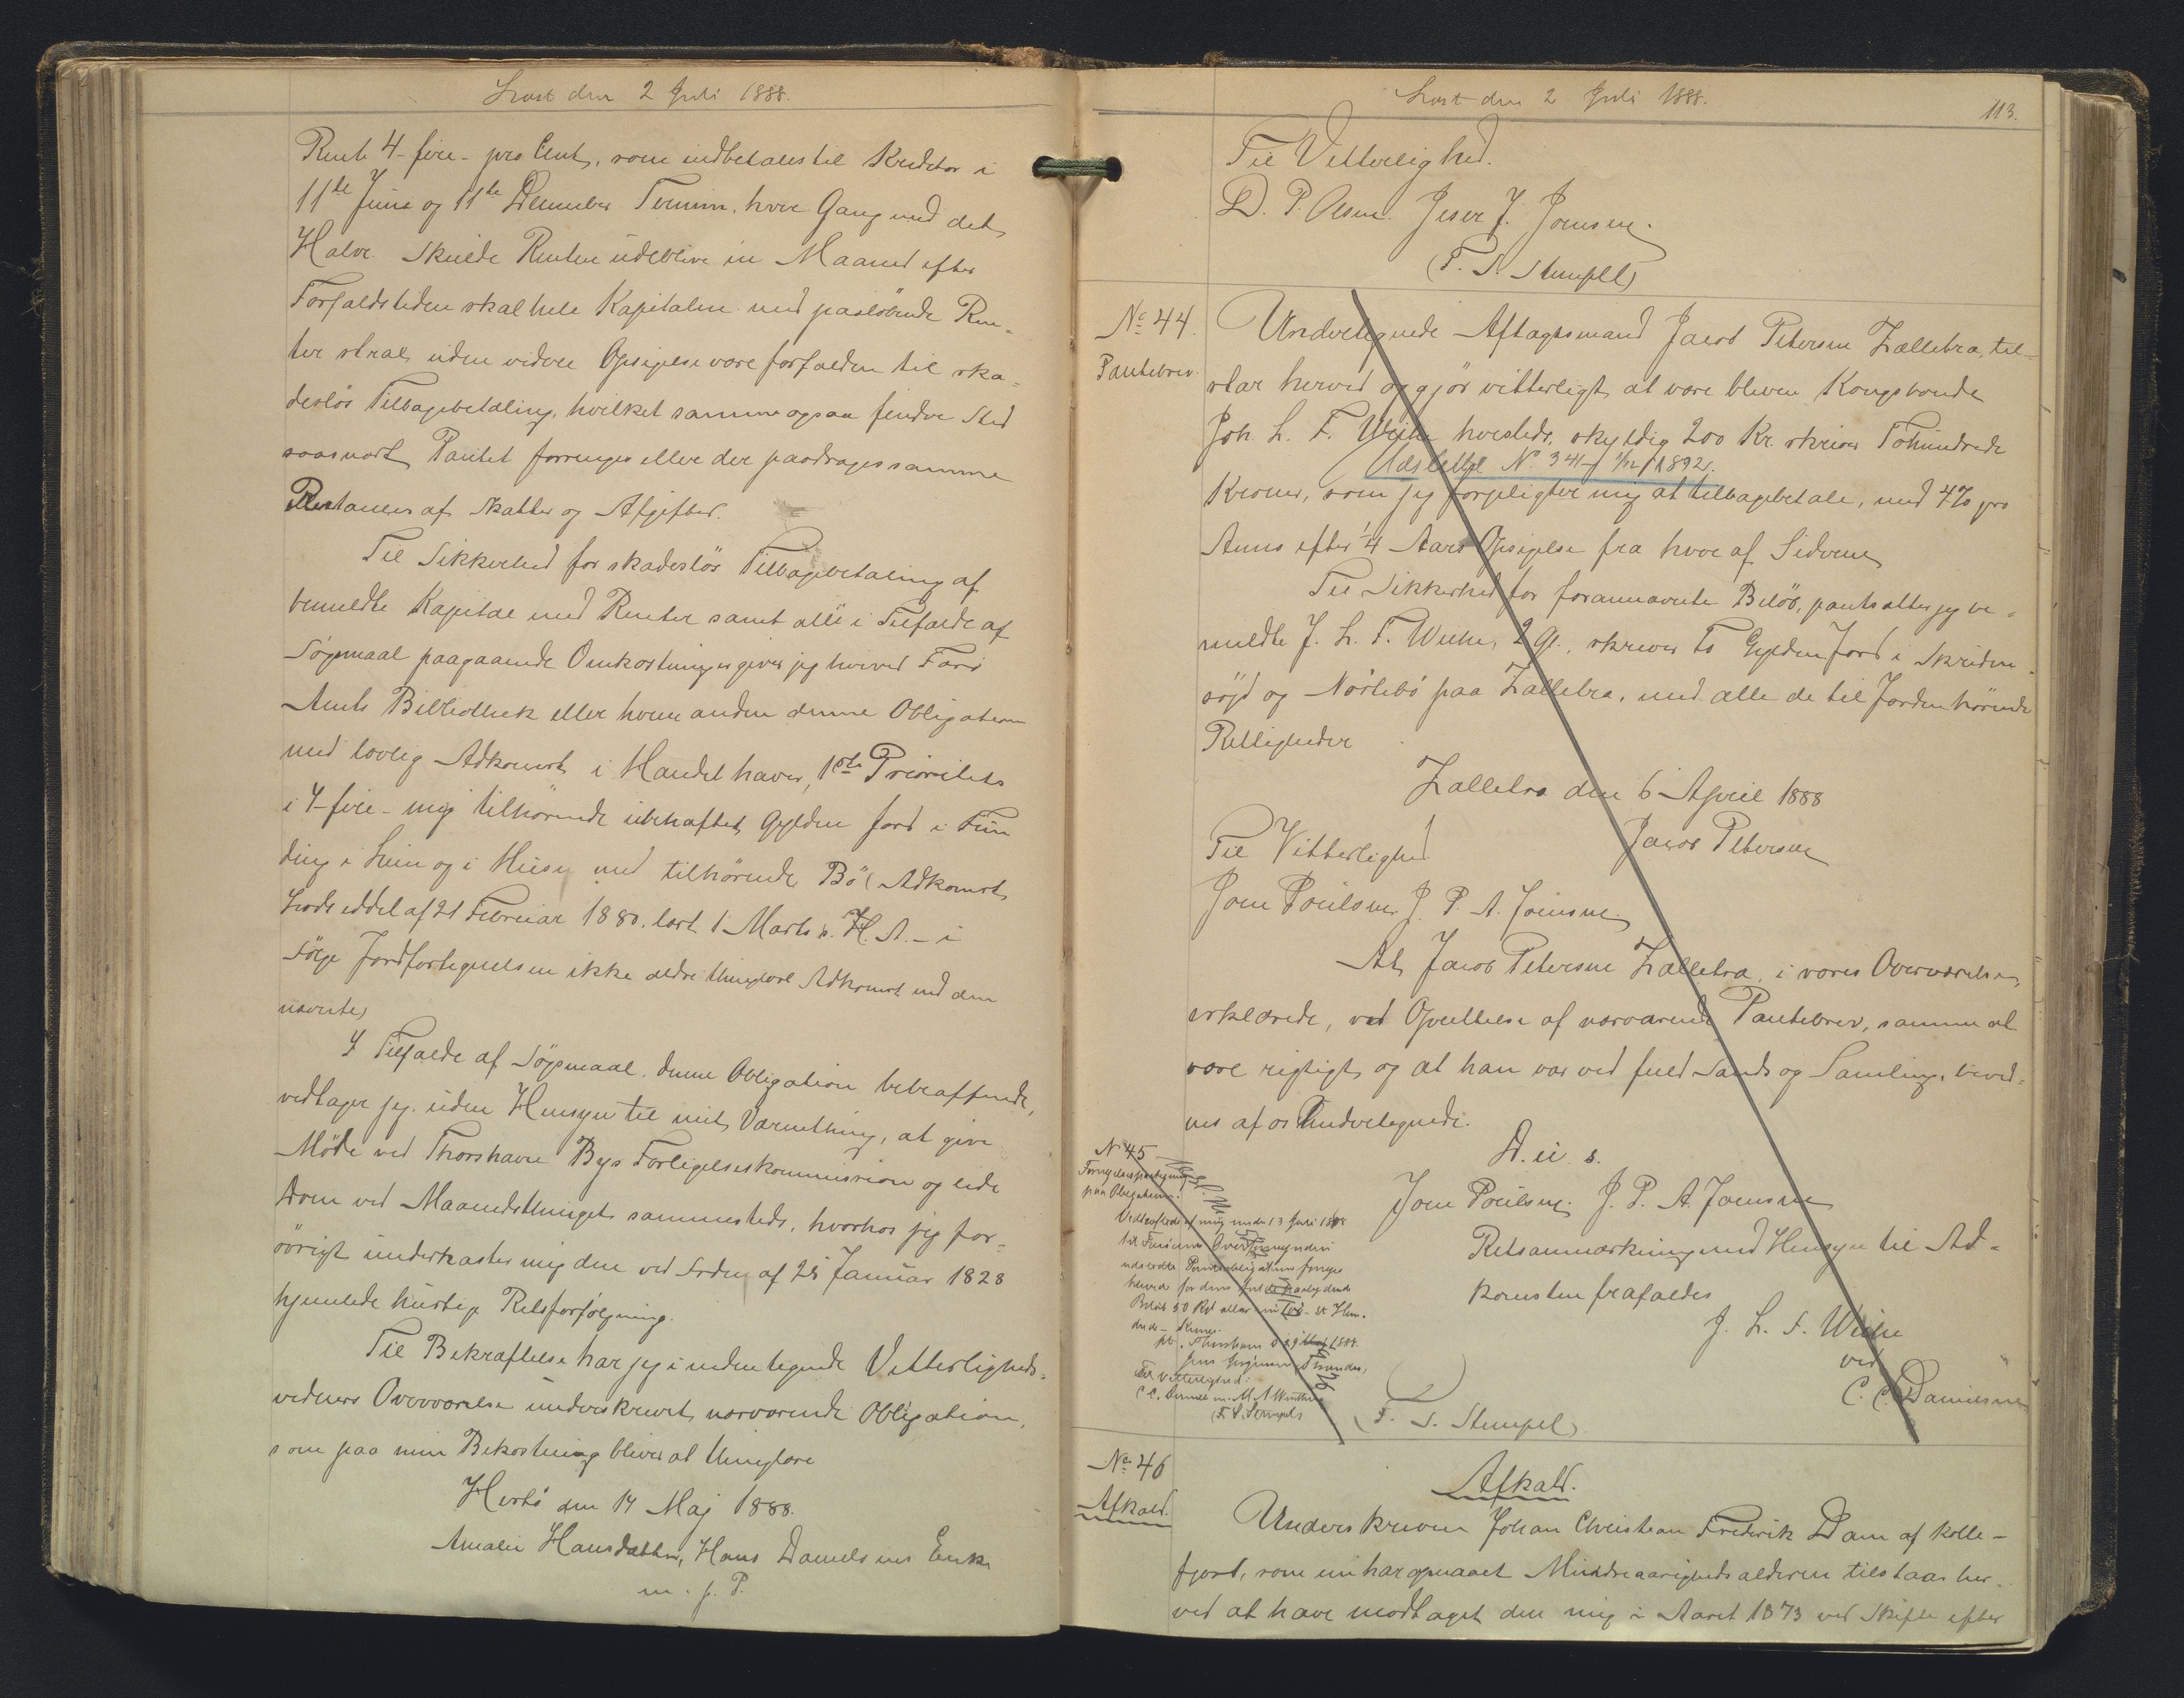 Læst den 2 Juli 1888.
Rente 4 - fire - pro Cent, som indbetales til Kreditor i
11te Juni og 11te December Termin, hver Gang med det
Halve. Skulde Renten udeblive en Maaned efter
Forfaldstiden skal hele Kapitalen med paaløbende Ren-
ter strax uden videre Opsigelse være forfalden til ska-
desløs Tilbagebetaling, hvilket samme ogsaa finder Sted
saasnart Pantet forringes eller der paadrages samme
Restancer af Skatter og Afgifter.
Til Sikkerhed for skadesløs Tilbagebetaling af
bemeldte Kapital med Renter samt alle i Tilfælde af
Søgsmaal paagaaende Omkostninger giver jeg herved Færø
Amts Bibliothek eller hvem anden denne Obligation
med lovlig Adkomst i Hænde haver, 1ste Prioritets
i 4 - fire - mig tilhørende ubehæftet Gylden Jord i Fun
ding i Lein og i Husey med tilhørende Bø (Adkomst
Lodseddel af 21 Februar 1880. læst 1 Marts s. A. - i
Følge Jordfortegnelsen ikke ældre thinglæst Adkomst end den
nævnte)
I Tilfælde af Søgsmaal, denne Obligation betræffende,
vedtager jeg, uden Hensyn til mit Værnething, at give
Møde ved Thorshavns Bys Forligelseskommission og lide
Dom ved Maanedsthinget sammesteds, hvorhos jeg for-
øvrigt underkaster mig den ved Frdn af 25 Januar 1828
hjemlede hurtige Retsforfølgning.
Til Bekræftelse har jeg i undertegnede Vitterligheds-
vidners Overværelse underskrevet nærværende Obligation,
som paa min Bekostning bliver at thinglæse
Hestø den 14 Maj 1888.
Amalie Hansdatter, Hans Danielsens Enke
m. f. P.
Læst den 2 Juli 1888.
113.
Til Vitterlighed.
D. P. Olsen. J. Joensen.
(F. S. Stempel)
No 44.
Pantebrev.
Undertegnede Aftægtsmand Jacob Petersen Zallebra, til-
staar herved og gjør vitterligt, at være bleven Kongsbonde
Joh. L. F. Weihe hvesteds, skyldig 200 Kr. skriver Tohundrede
Udslettet No. 341 1/12 1892.
Kroner, som jeg forpligter mig at tilbagebetale, med 4% pro
Anno efter 1/4 Aars Opsigelse fra hver af Siderne
Til Sikkerhed for forannævnte Beløb, pantsætter jeg be-
meldte J. L. F. Weihe, 2 Gl., skriver to Gylden Jord i Skriden-
søjd og Nørlebø paa Zallebra, med alle de til Jorden hørende
Rettigheder
Zallebra den 6 April 1888
Til Vitterlighed
Jacob Petersen
Joen Poulsen. J. P. A. Joensen.
At Jacob Petersen Zallebra, i vores Overværelse,
erklærede, ved Oprettelse af nærværende Pantebrev, samme at
være rigtigt, og at han var ved fuld Sands og Samling, bevid-
nes af os Undertegnede.
D. u. s.
Joen Poulsen. J. P. A. Joensen
Retsanmærkning med Hensyn til Ad-
komsten frafaldes
J. L. F. Weihe
ved
C. C. Danielsen
(F. S. Stempel)
No 45
Fornyelsespaategning
paa Obligation:
Vedhæftede af mig under 13 Juni 1868
til Færøernes Overformynderi
udstedte Panteobligation fornyes
herved for dens fulde paalydende
Beløb 50 Rd eller nu 100 - et Hun-
drede - Kroner.
pt. Thorshavn d 29 1888.
Til Vitterlighed:
(F. S. Stempel)
No 46
Afkald.
Afkald.
Underskreven Johan Christian Frederik Dam af Kolle-
fjord, som nu har opnaaet Mindreaarighedsalderen tilstaar her-
ved at have modtaget den mig i Aaret 1873 ved Skifte efter